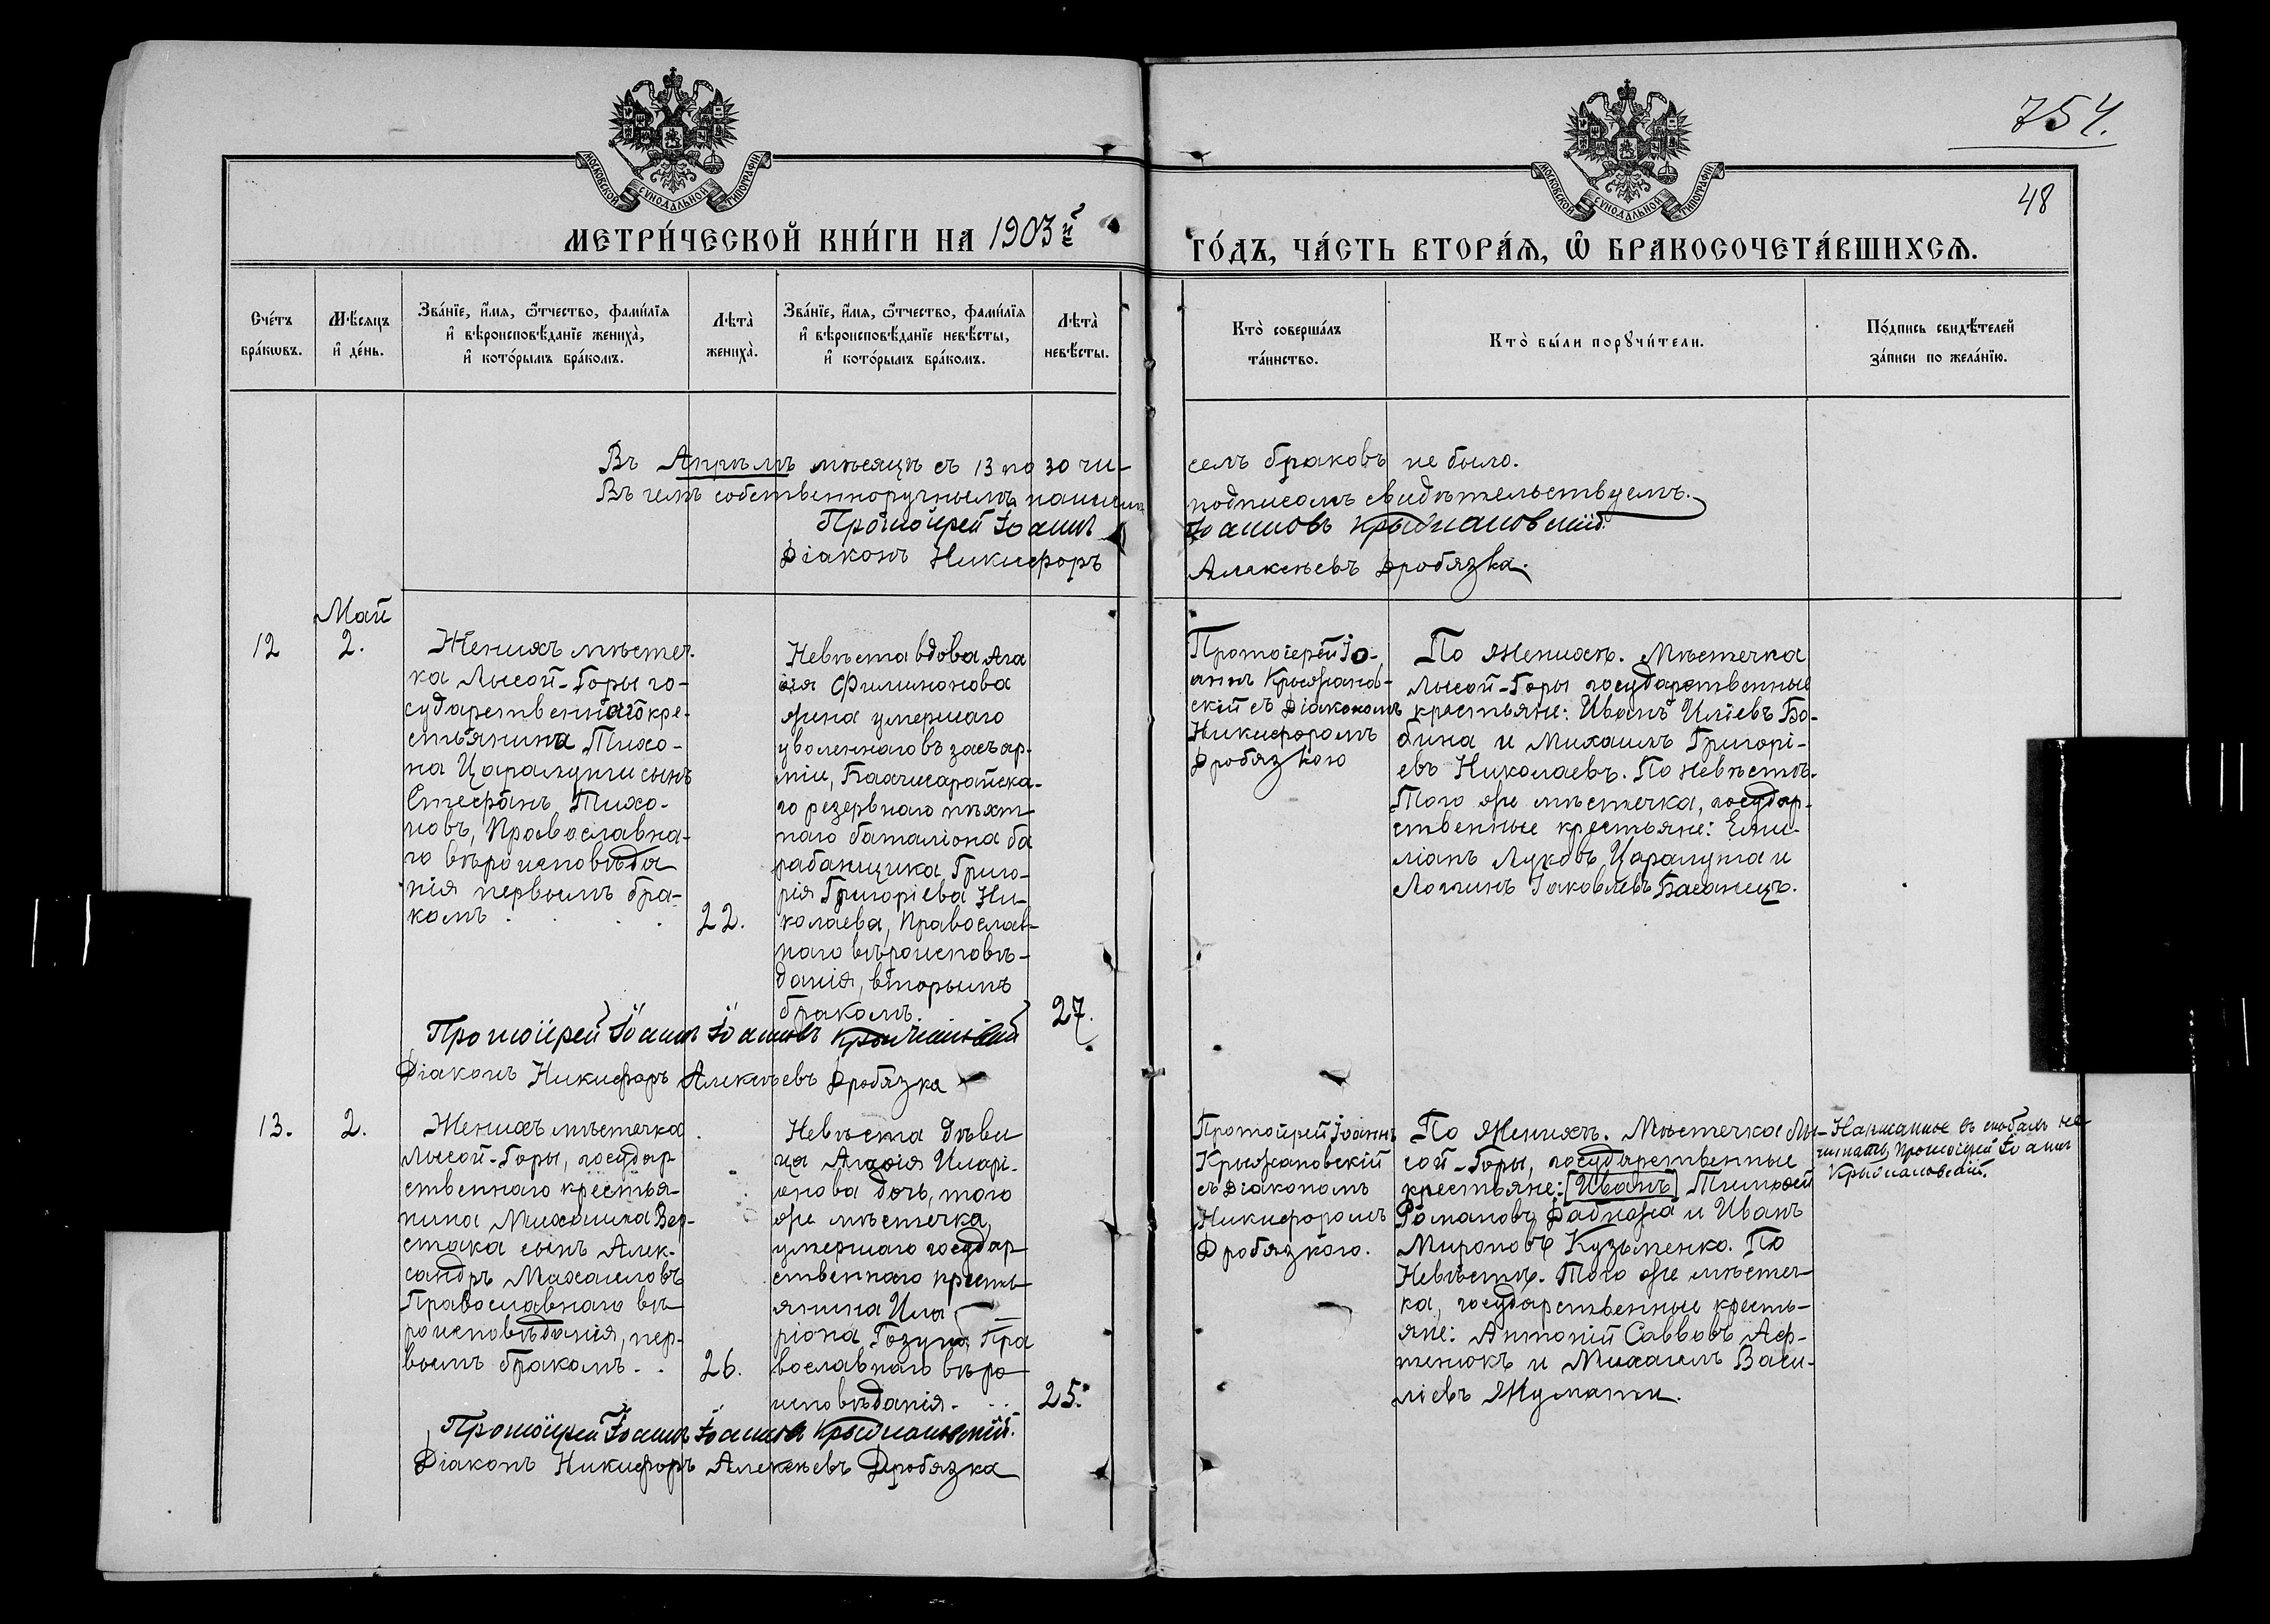 754.
48
МОСКОВСКОЙ СѴНОДАЛЬНОЙ ТИПОГРАФІИ
МОСКОВСКОЙ СѴНОДАЛЬНОЙ ТИПОГРАФІИ
МЕТРИ́ЧЕСКОЙ КНИ́ГИ НА 1903й
ГО́ДЪ, ЧА́СТЬ ВТОРА́Ѧ, Ѿ БРАКОСОЧЕТА́ВШИХСѦ.
Сче́тъ
бра́кѡвъ.
Мѣ́сяцъ
и҆ де́нь.
Зва́нїе, и҆́мѧ, ѻ҆́тчество, фами́лїѧ
и҆ вѣроисповѣ́данїе жениха̀,
и҆ кото́рымъ бра́комъ.
Лѣта̀
жениха̀.
Зва́нїе, и҆́мѧ, ѻ҆́тчество, фами́лїѧ
и҆ вѣроисповѣ́данїе невѣ́сты,
и҆ кото́рымъ бра́комъ.
Лѣта̀
невѣ́сты.
Кто̀ соверша́лъ
та́инство.
Кто̀ бы́ли порꙋчи́тели.
По́дпись свидѣ́телей
за́писи по жела́нїю.
Въ Апрѣлѣ мѣсяцѣ съ 13 по 30 чи-
селъ браковъ не было.
Въ чемъ собственноручнымъ нашимъ
подписомъ свидѣтельствуемъ.
Протоіерей Іоаннъ
Іоанновъ Крыжановскій.
Діаконъ Никифоръ
Алексѣевъ Дробязка.
Май
12
2.
Женихъ мѣстеч-
ка Лысой-Горы го-
сударственнаго кре-
стьянина Тихо-
на Царалунги сынъ
Стефанъ Тихо-
новъ, Православна-
го вѣроисповѣда
нія первымъ бра-
комъ . . .
22.
Невѣста вдова Ага
ѳія Филимонова
жена умершаго
уволеннаго въ зап. ар-
міи, Бахчисарайска-
го резервнаго пѣхот
наго баталіона ба
рабанщика Григо-
рія Григоріева Ни-
колаева, Православ-
наго вѣроисповѣ-
данія, вторымъ
бракомъ.
27.
Протоіерей Іо-
аннъ Крыжанов-
скій съ Діакономъ
Никифоромъ
Дробязкою
По Женихѣ. Мѣстечка
Лысой-Горы государственные
крестьяне: Иванъ Иліевъ Бо-
бина и Михаилъ Григорі-
евъ Николаевъ. По невѣстѣ.
Того же мѣстечка, государ-
ственные крестьяне: Еми-
ліанъ Луковъ Царалунга и
Логинъ Іаковлевъ Басанецъ.
Протоіерей Іоаннъ Іоанновъ Крыжановскій
Діаконъ Никифоръ Алексѣевъ Дробязка
13.
2.
Женихъ мѣстечка
Лысой-Горы, государ
ственнаго крестья-
нина Михаила Вер-
стака сынъ Алек-
сандръ Михаиловъ
Православнаго вѣ-
роисповѣданія, пер-
вымъ бракомъ. .
26.
Невѣста дѣви
ца Агаѳія Иларі-
онова дочь, того
же мѣстечка,
умершаго государ
ственнаго кресть
янина Ила
ріона Гозуна Пра
вославнаго вѣро
исповѣданія. . .
25.
Протоіерей Іоаннъ
Крыжановскій
съ Діакономъ
Никифоромъ
Дробязкою.
По Женихѣ. Мѣстечка Лы-
сой-Горы, государственные
крестьяне: [Иванъ] Тимоѳей
Романовъ Бабножа и Иванъ
Мироновъ Кузьменко. По
Невѣстѣ. Того же мѣстеч-
ка, государственные кресть-
яне: Антоній Саввовъ Аф-
тенюкъ и Михаилъ Васи-
ліевъ Жумати.
Написанное въ скобахъ не
читать, Протоіерей Іоаннъ
Крыжановскій.
Протоіерей Іоаннъ Іоанновъ Крыжановскій.
Діаконъ Никифоръ Алексѣевъ Дробязка